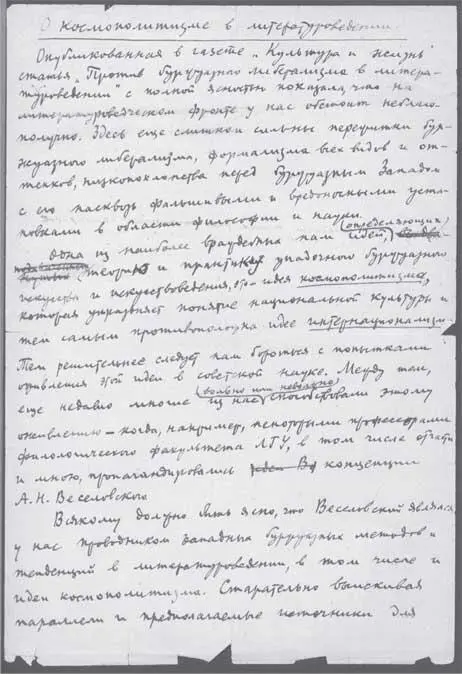 О космополитизме в литературоведении
Опубликованная в газете „Культура и жизнь"
статья „Против буржуазного либерализма в литера-
туроведении" с полной ясностью показала, что на
литературоведческом фронте у нас обстоит неблаго-
получно. Здесь еще слишком сильны пережитки бур-
жуазного либерализма, формализма всех видов и от-
тенков, низкопоклонства перед буржуазным Западом
с его насквозь фальшивыми и вредоносными уста-
новками в области философии и науки.
Одна из наиболее враждебных нам идей, (определяющих)
теорию и практику упадочного буржуазного
искусства и искусствоведения, это идея космополитизма,
которая упраздняет понятие национальной культуры и
тем самым противоположна идее интернационализма.
Тем решительнее следует нам бороться с попытками
оживления этой идеи в советской науке. Между тем,
еще недавно многие из нас (вольно или невольно) способствовали этому
оживлению – когда, например, некоторыми профессорами
филологического факультета ЛГУ, в том числе отчасти
и мною, пропагандировались концепции
А. Н. Веселовского
Всякому должно быть ясно, что Веселовский являлся
у нас проводником западных буржуазных методов и
тенденций в литературоведении, в том числе и
идеи космополитизма. Старательно выискивая
параллели и предполагаемые источники для